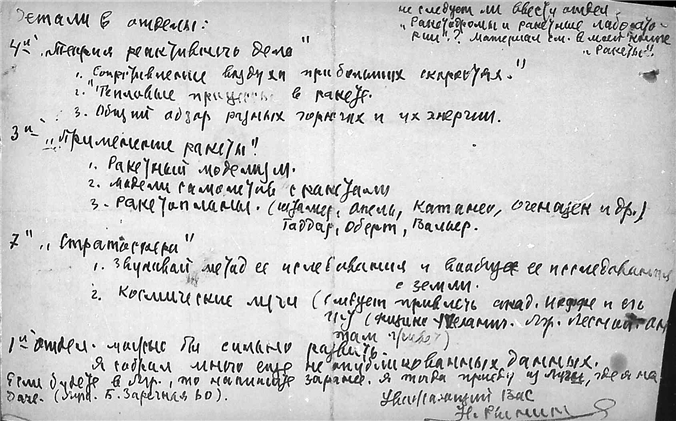 Детали в отделы:
не следует ли ввести отдел
„Ракетодромы и ракетные лаборато-
рии"? Материал см. в моей книге
„Ракеты".
4й „Теория реактивного дела"
1. Сопротивление воздуха при больших скоростях."
2. "Тепловые процессы в ракете.
3. Общий обзор разных горючих и их энергии.
3й „Применение ракеты"
1. Ракетный моделизм.
2. модели самолетов с ракетами
3. Ракетопланы. (Штамер, Опель, Катанео, и др.)
Годдар, Оберт, Валье.
7" „Стратосфера"
1. Звуковой метод ее исследования и вообще ее исследования
с земли.
2. Космические лучи (следует привлечь акад. Иоффе и его
там
1й отдел. можно бы сильно развить.
Я собрал много еще не опубликованных данных.
Если будете в Лгр., то напишите заранее. Я тогда приеду из Луги, где я на
даче. (Луга. Б. Заречная 60).
Уважающий Вас
Н. Рынин